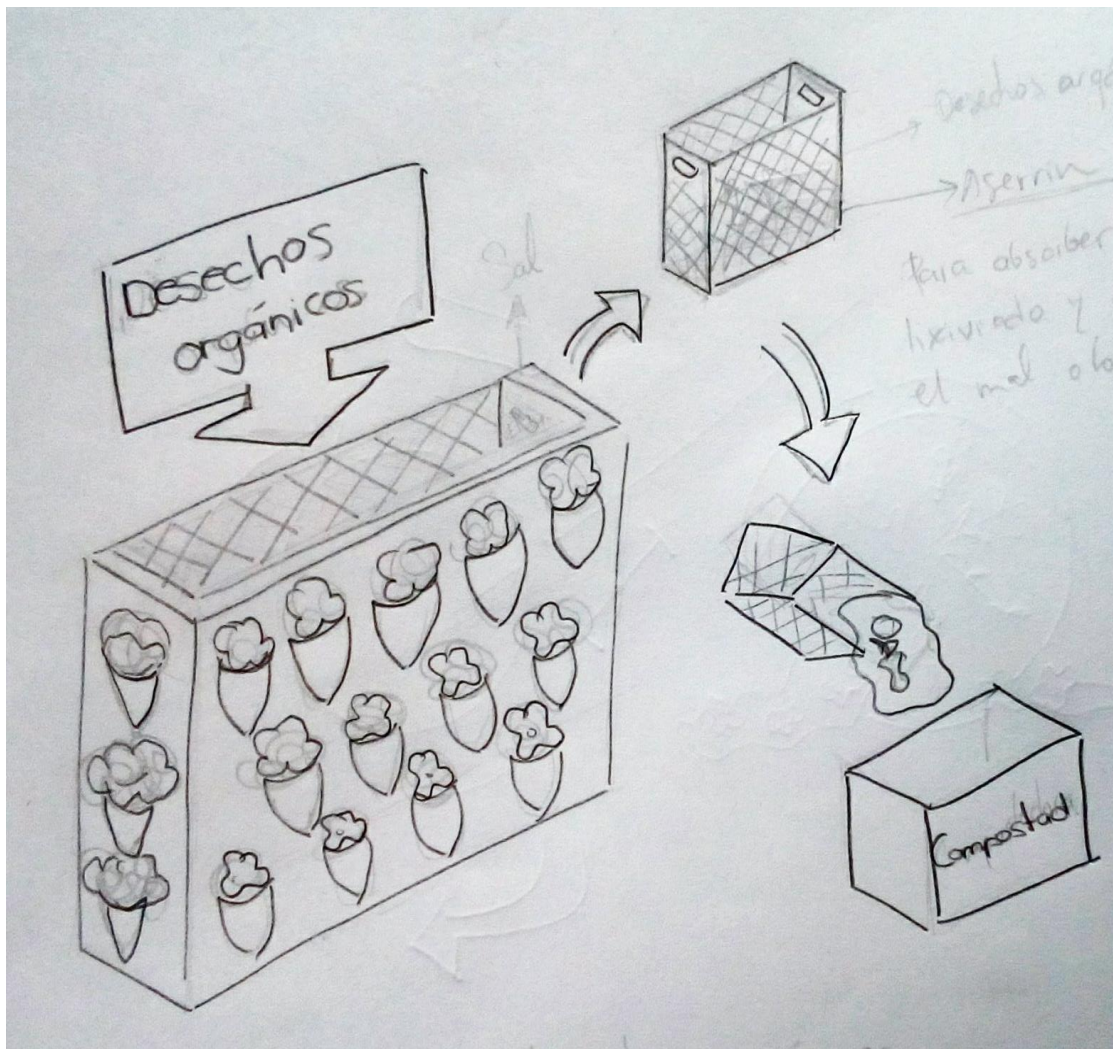 Desechos
orgánicos
Sal
Desechos
Aserrin
Para absorber
lixiviado y
el mal
Compostad